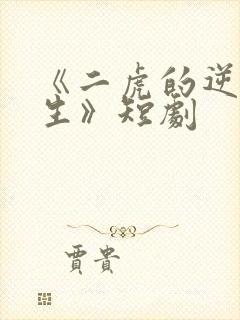 《二虎的逆
生》短劇
賈貴